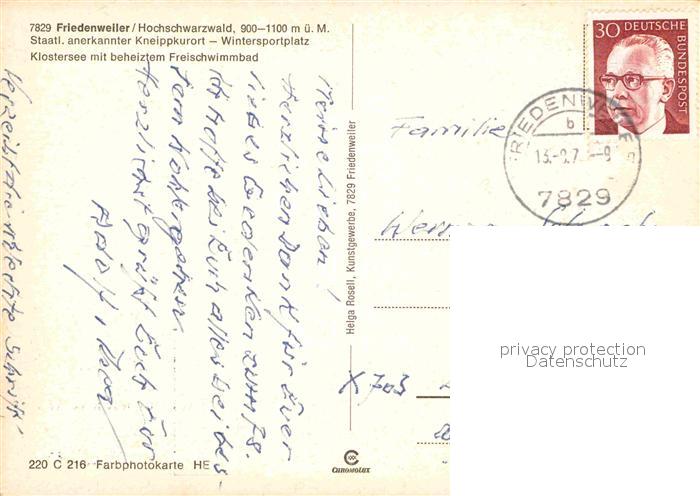 7829 Friedenweiler / Hochschwarzwald, 900–1100 m ü. M.
Staatl. anerkannter Kneippkurort – Wintersportplatz
Klostersee mit beheiztem Freischwimmbad
30 DEUTSCHE BUNDESPOST
FRIEDENWEILER
b
7829
Meine Lieben!
Herzlichen Dank für Euer
liebes Gedenken zum 78.
Ich hoffe bei Euch alles bei bes-
tem Wohlergehen.
Herzlichst grüßt Euch
Adolf
Verzeiht die schlechte Schrift!
Helga Rosell, Kunstgewerbe, 7829 Friedenweiler
Familie
Werner
X 703
privacy protection
Datenschutz
220 C 216 Farbphotokarte HE
CHROMOLUX